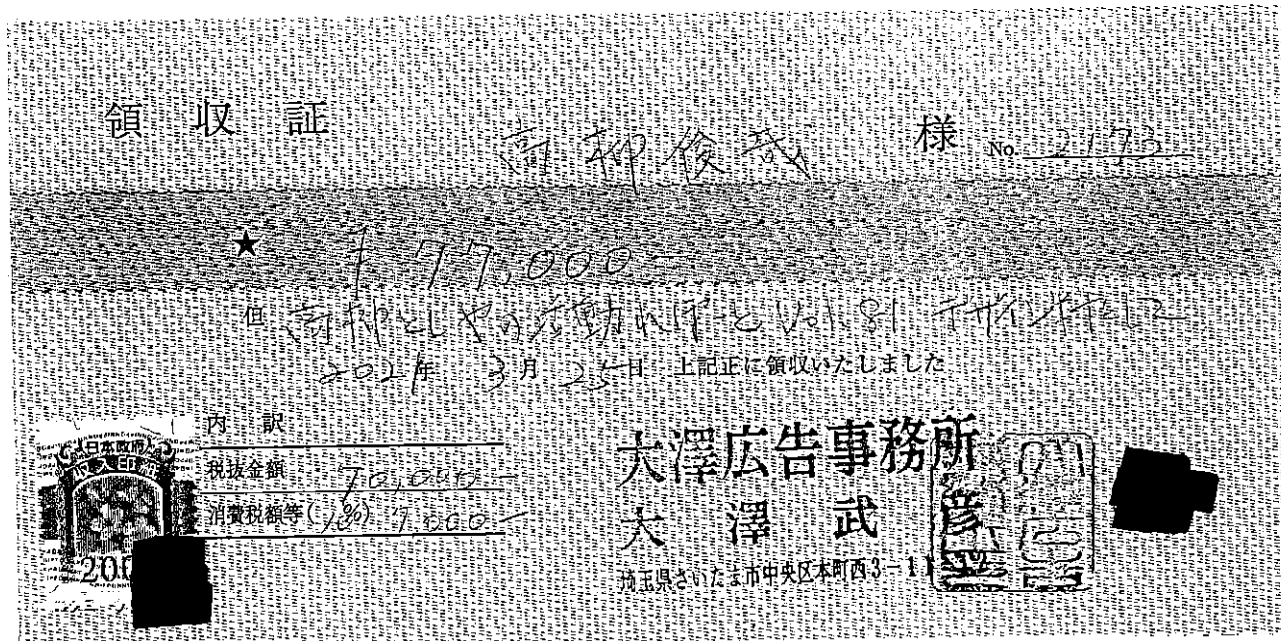 領収証 高柳俊哉 様 No. 2173
★ ¥77,000-
但 高柳としやの活動れぽーと Vol.81 デザイン料として
2021年 3月 25日 上記正に領収いたしました
内訳
税抜金額 70,000-
消費税額等(10%) 7,000-
日本政府
収入印紙
200
大澤広告事務所
大澤武彦
埼玉県さいたま市中央区本町西3-1